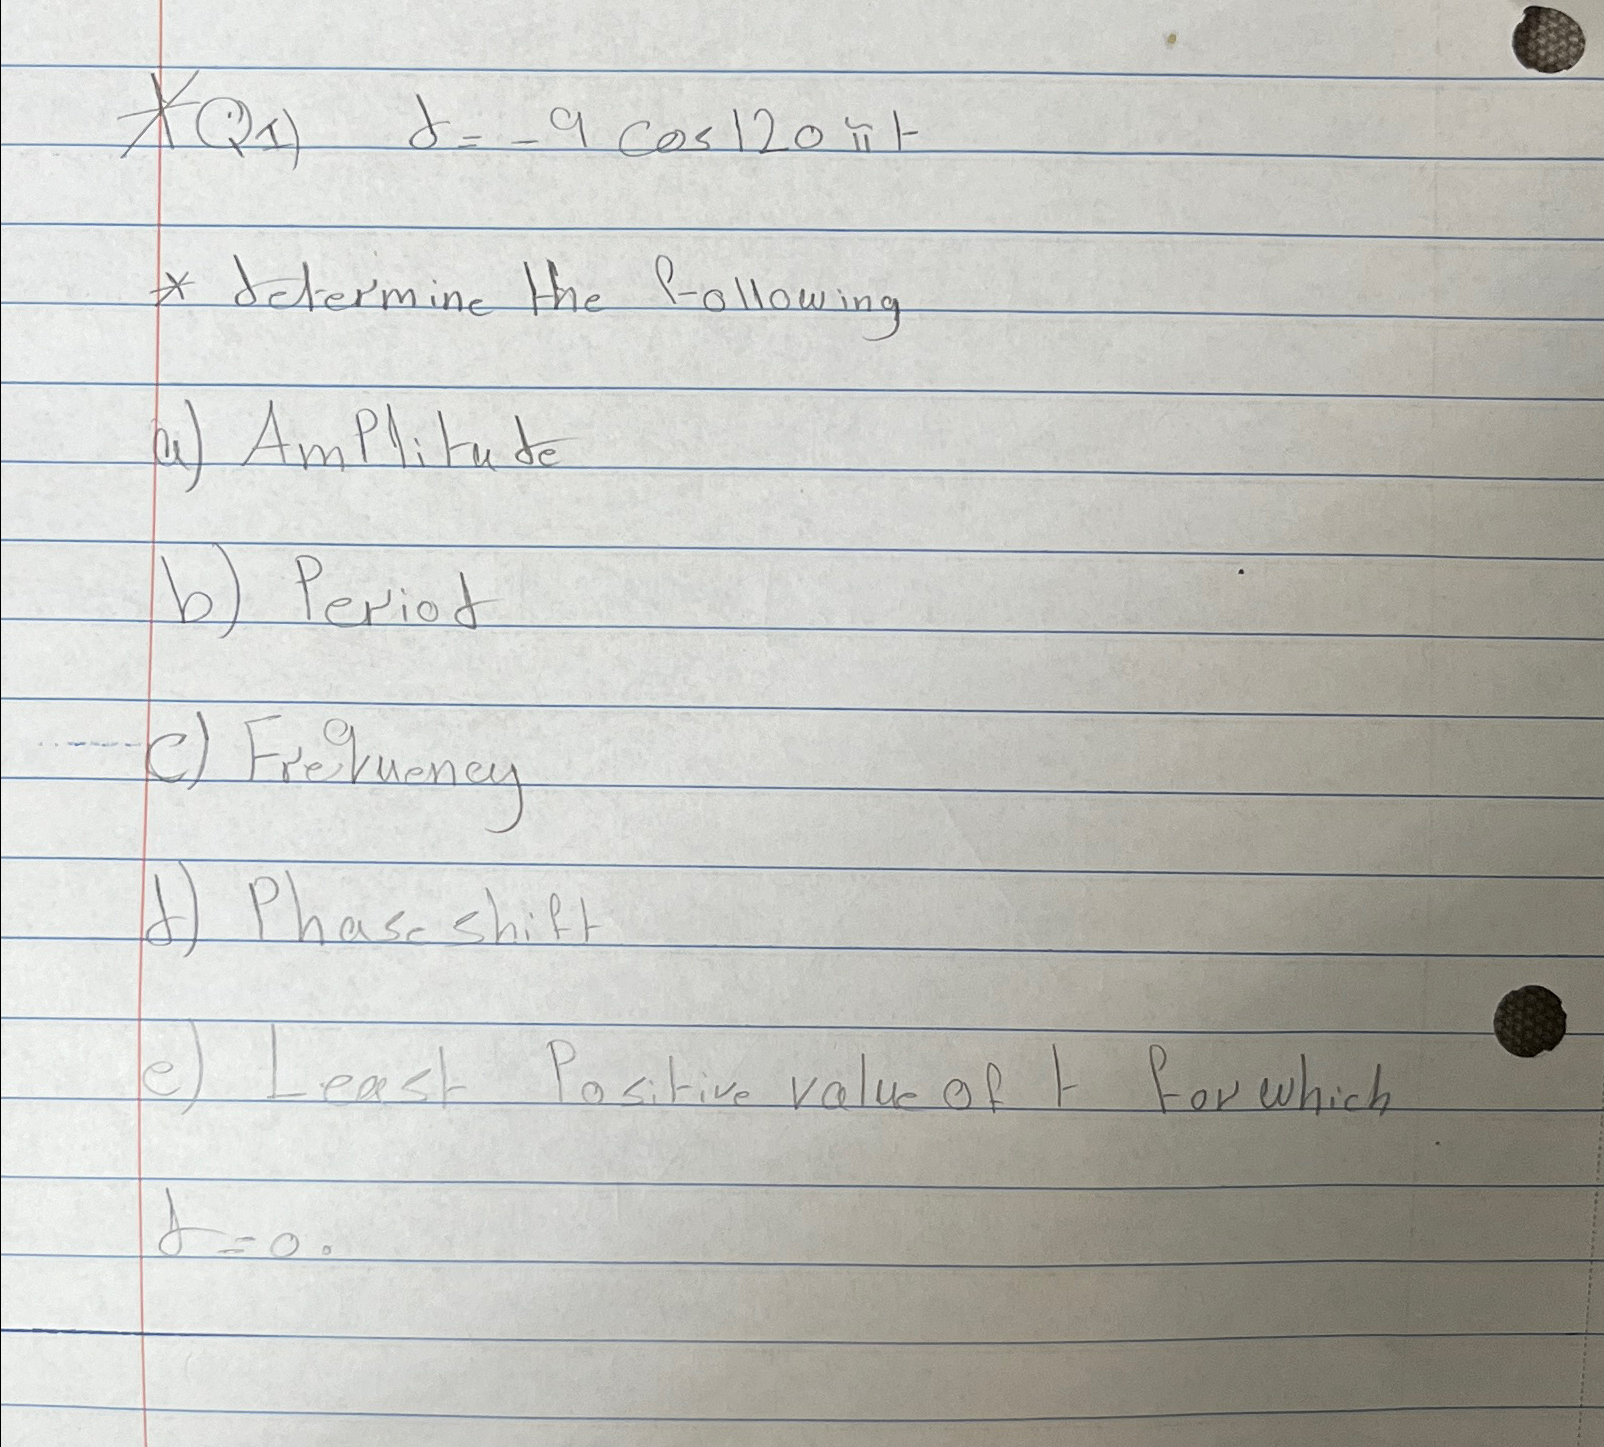 * Q1) d = -9 cos 120 π t
* determine the following
a) Amplitude
b) Period
c) Frequency
d) Phase shift
e) Least Positive value of t for which
d = 0.